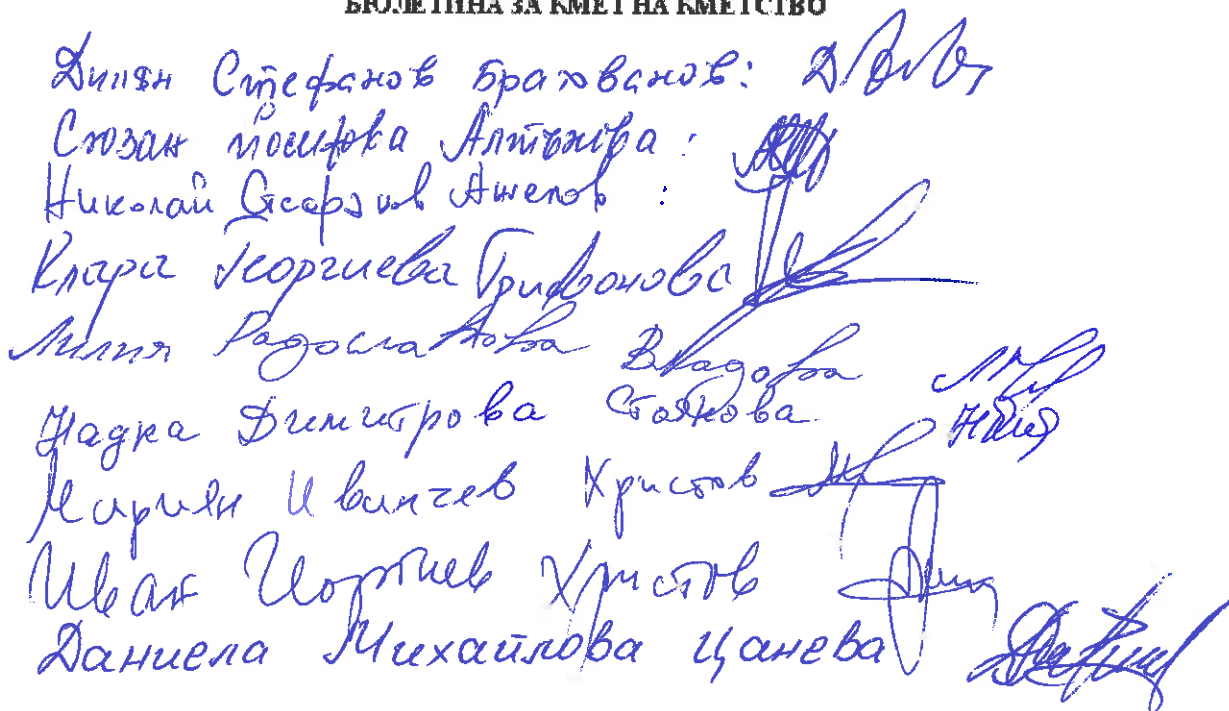 БЮЛЕТИНА ЗА КМЕТ НА КМЕТСТВО
Дилян Стефанов Брахованов:
Сюзан Йосифова Алтънова:
Николай Ангелов:
Клара Георгиева Трифонова
Лилия Радославова Владова
Надка Димитрова Стойкова
Мариян Иванчев Христов
Иван Христов
Даниела Михайлова Цанева